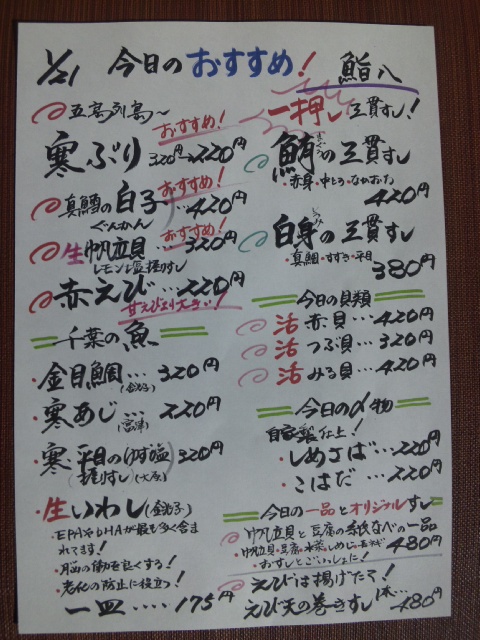 1/21 今日のおすすめ! 鮨八
五島列島~
おすすめ!
寒ぶり 320円→220円
おすすめ!
真鱈の白子…420円
ぐんかん
おすすめ!
生帆立貝…320円
レモンと塩握りすし
赤えび…220円
甘えびより大きい!
千葉の魚
・金目鯛…320円
(銚子)
・寒あじ…220円
(富津)
・寒平目のゆず塩 320円
握りすし (大原)
・生いわし(銚子)
・EPAやDHAが最も多く含ま
れてます!
・脳の働を良くする!
・老化の防止に役立つ!
一皿……175円
一押し三貫すし!
鮪の三貫すし
まぐろ
・赤身・中とろ・なかおち
420円
白身の三貫すし
しろみ
・真鯛・すずき・平目
380円
今日の貝類
活 赤貝…420円
活 つぶ貝…320円
活 みる貝…420円
今日の〆物
自家製仕上!
・しめさば…220円
・こはだ…220円
今日の一品とオリジナルすし
帆立貝と豆腐の紙なべの一品
・帆立貝・豆腐・水菜・しめじ・長ネギ
480円
・おすしとごいっしょに!
えびは揚げたて!
えび天の巻きすし 1本…480円